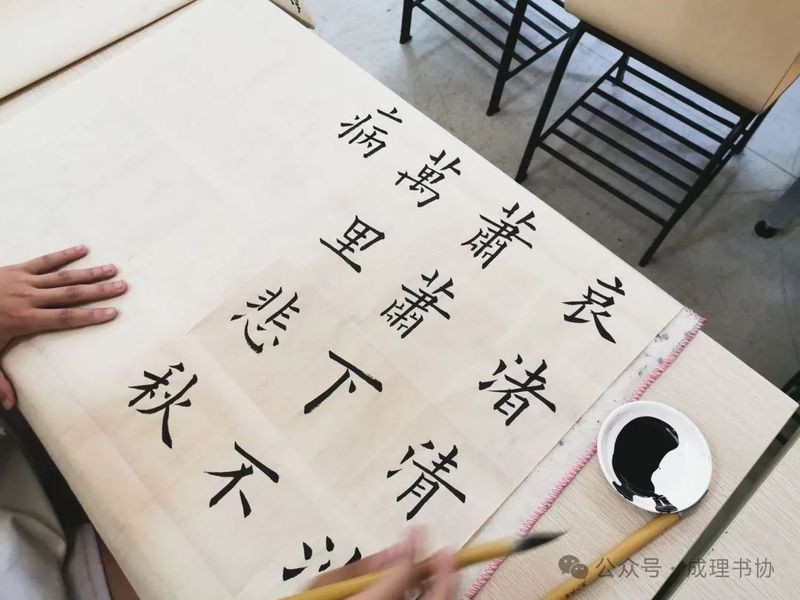 哀渚清
蕭蕭下不
萬里悲秋
病
公众号·成理书协